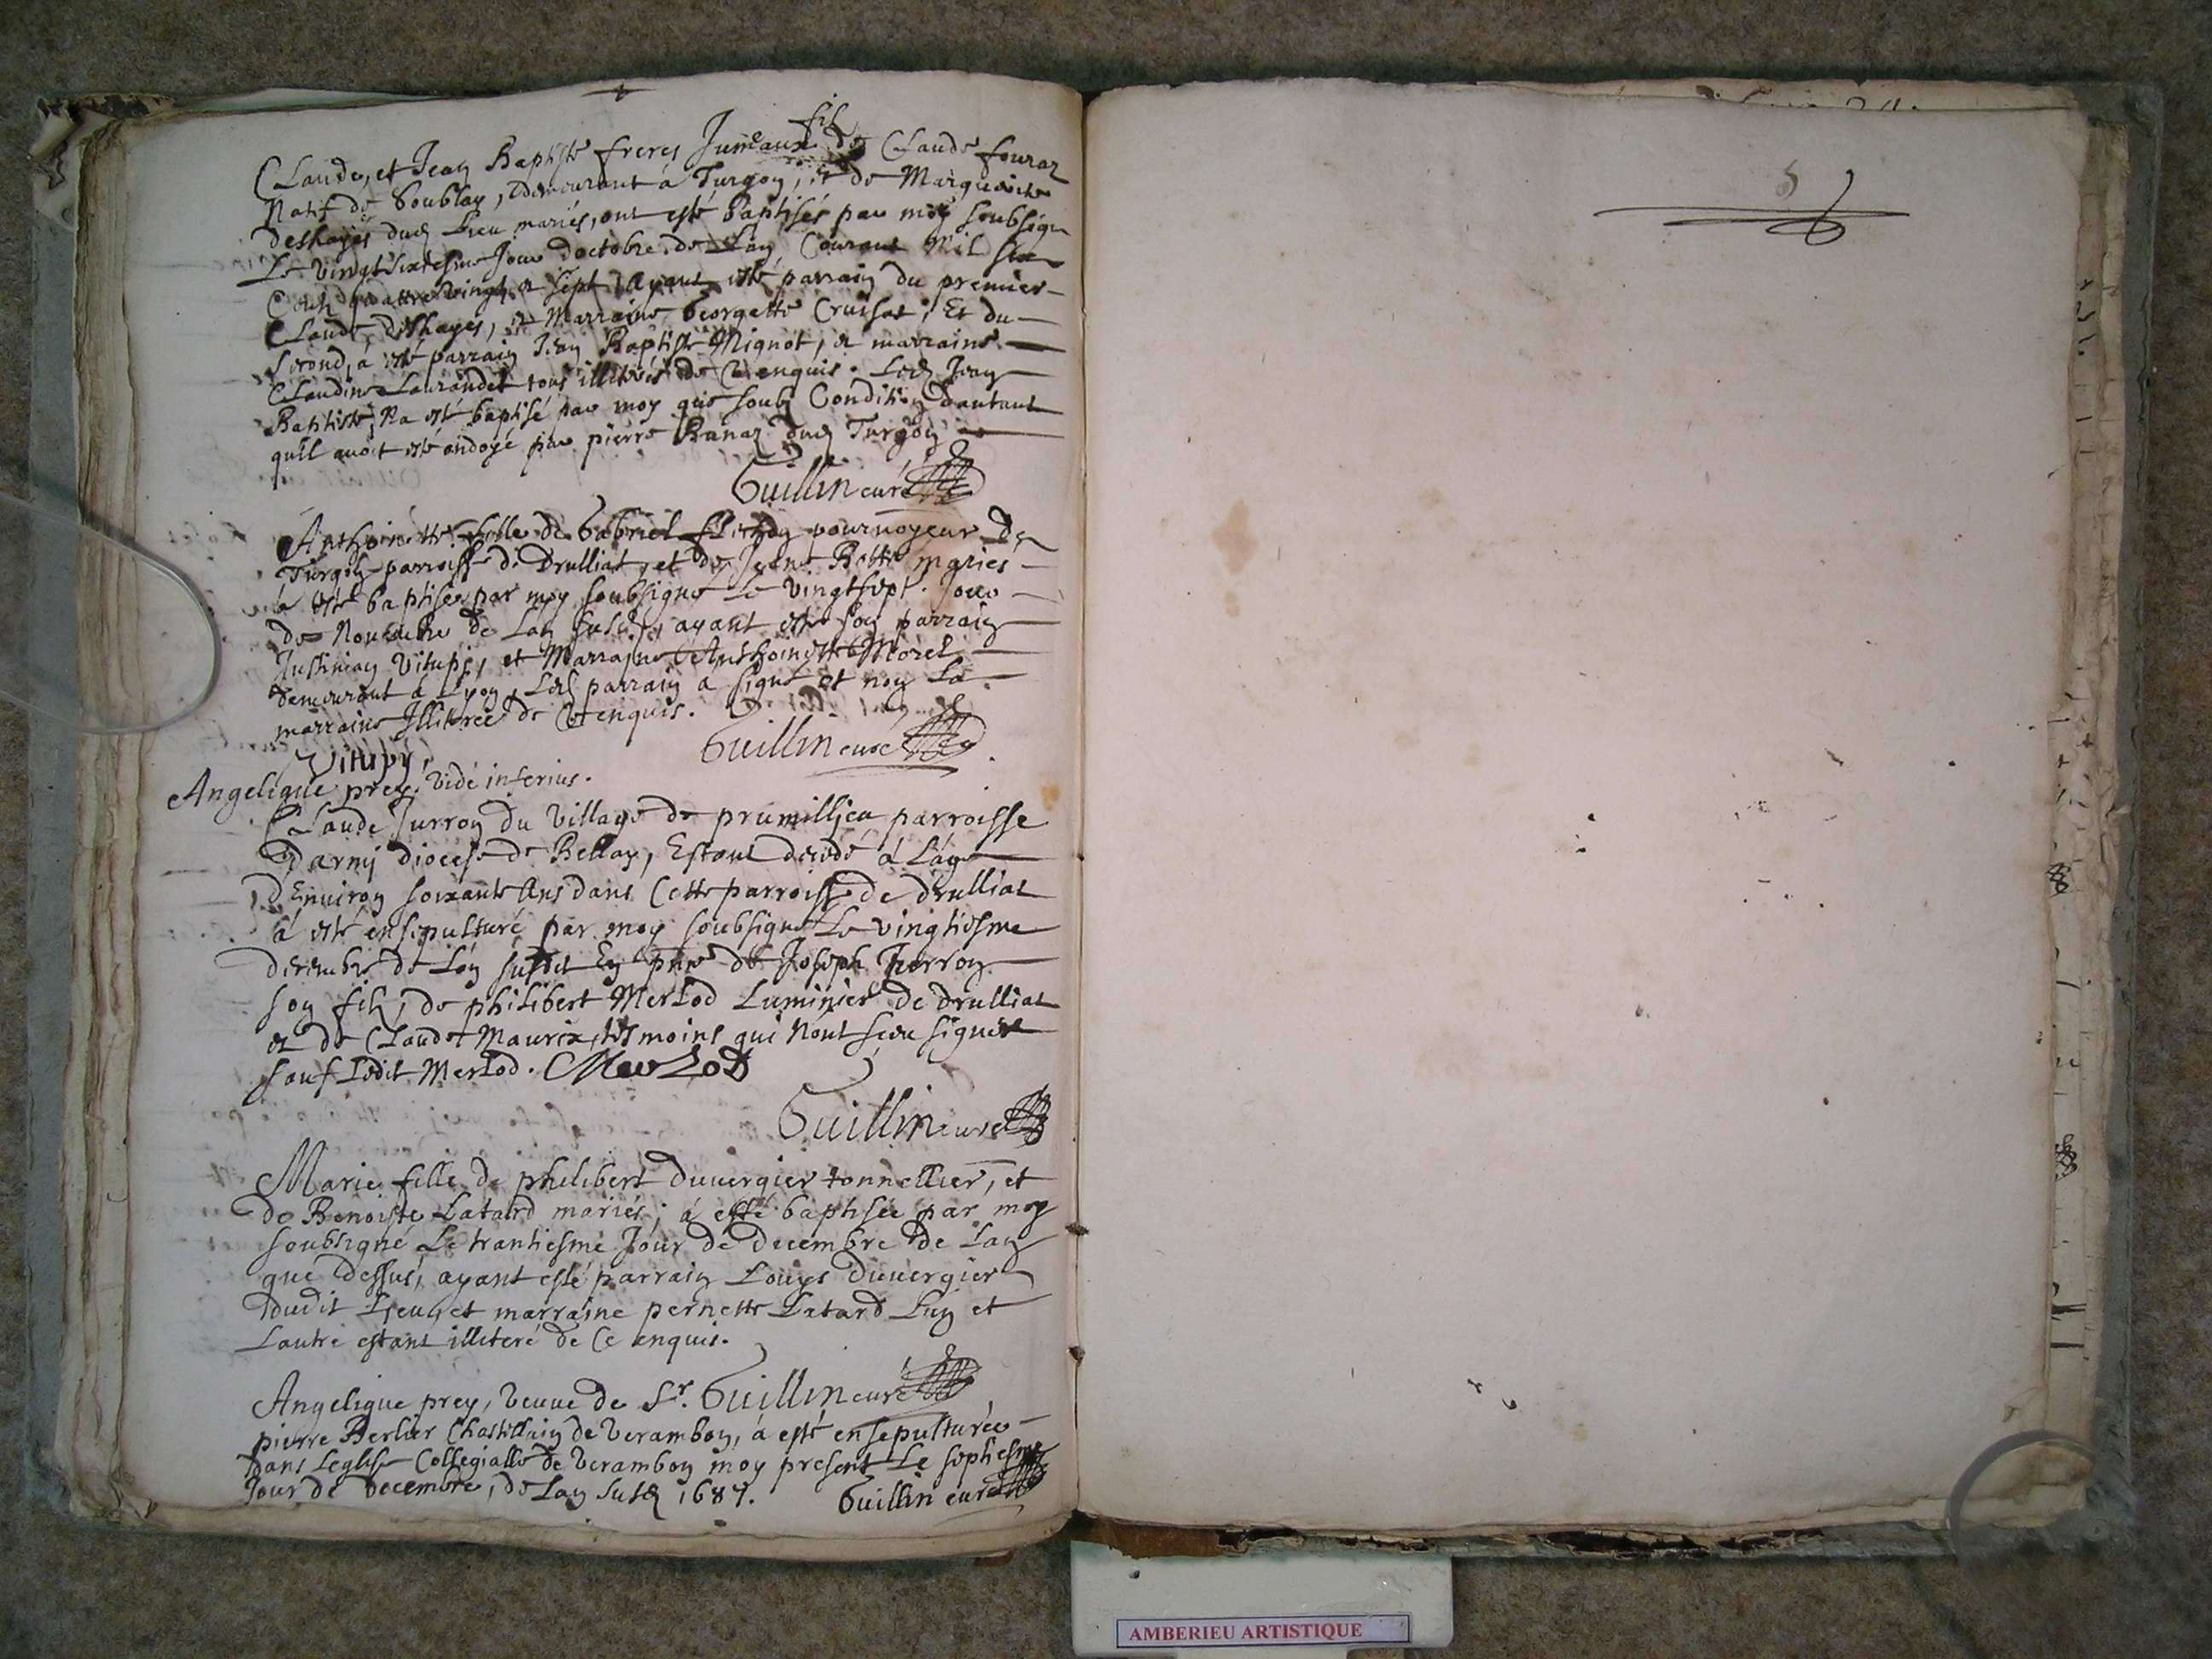 fil
Claude, et Jean Baptiste freres Jumeaux de Claude fouraz
Natif de Soublay, demourant à Turgon, et de Marguerite
deshayes dud Lieu mariés, ont esté baptisés par moy soubsigné
Le vingt sixiesme Jour doctobre de Lan Courant Mil six
Cens quattre vingt et sept, Ayant esté parrain du premier
Claude deshayes, et Marraine Georgette Cruisat; Et du
second, a esté parrain Jean Baptiste Mignot, et marraine
Claudine Laurandet tous illiterés de ce enquis. Led Jean
Baptiste, Na esté baptisé par moy que soub Condition dautant
quil avoit esté ondoyé par pierre Ranaz dud Turgon
Guillin curé
Anthoinette fille de Gabriel pourvoyeur de
Turgon parroisse de Drulliat, et de Jeane mariés
a esté baptisée par moy soubsigné Le vingtsept Jour
de Novembre de Lan susd, ayant esté son parrain
Justinian Vitupy, et Marraine Anthoinette Morel
demourant à Lyon, Led parrain a signé et non La
marraine Illiterée de ce enquis.
Vitupy,
Guillin curé
Angelique prey. vide inferius.
Claude Jurron du village de prumillieu parroisse
Darmy diocese de Bellay, Estant decedé à Lage
dEnviron soixante Ans dans Cette parroisse de drulliat
à esté ensepulturé par moy soubsigné Le vingtiesme
decembre de Lan susdit En pñce de Joseph Jurron
son filz, de philibert Merlod Luminier de drulliat
et de Claude Maurix, tesmoins qui Nont sceu signer
sauf Ledit Merlod. Merlod
Guillin curé
Marie fille de philibert duvergier tonnellier, et
de Benoiste Latard mariés; à esté baptisée par moy
soubsigné Le trantiesme Jour de decembre de Lan
que dessus, ayant esté parrain Louys duvergier
dudit Lieu, et marraine pernette Latard Lun et
Lautre estant illiteré de Ce enquis.
Guillin curé
Angelique prey, veuve de Sr.
pierre Berlier Chastellain de Varambon, à esté ensepulturée
dans Leglise Collegialle de Varambon moy present Le septiesme
Jour de Decembre, de Lan susd 1687. Guillin curé
AMBERIEU ARTISTIQUE